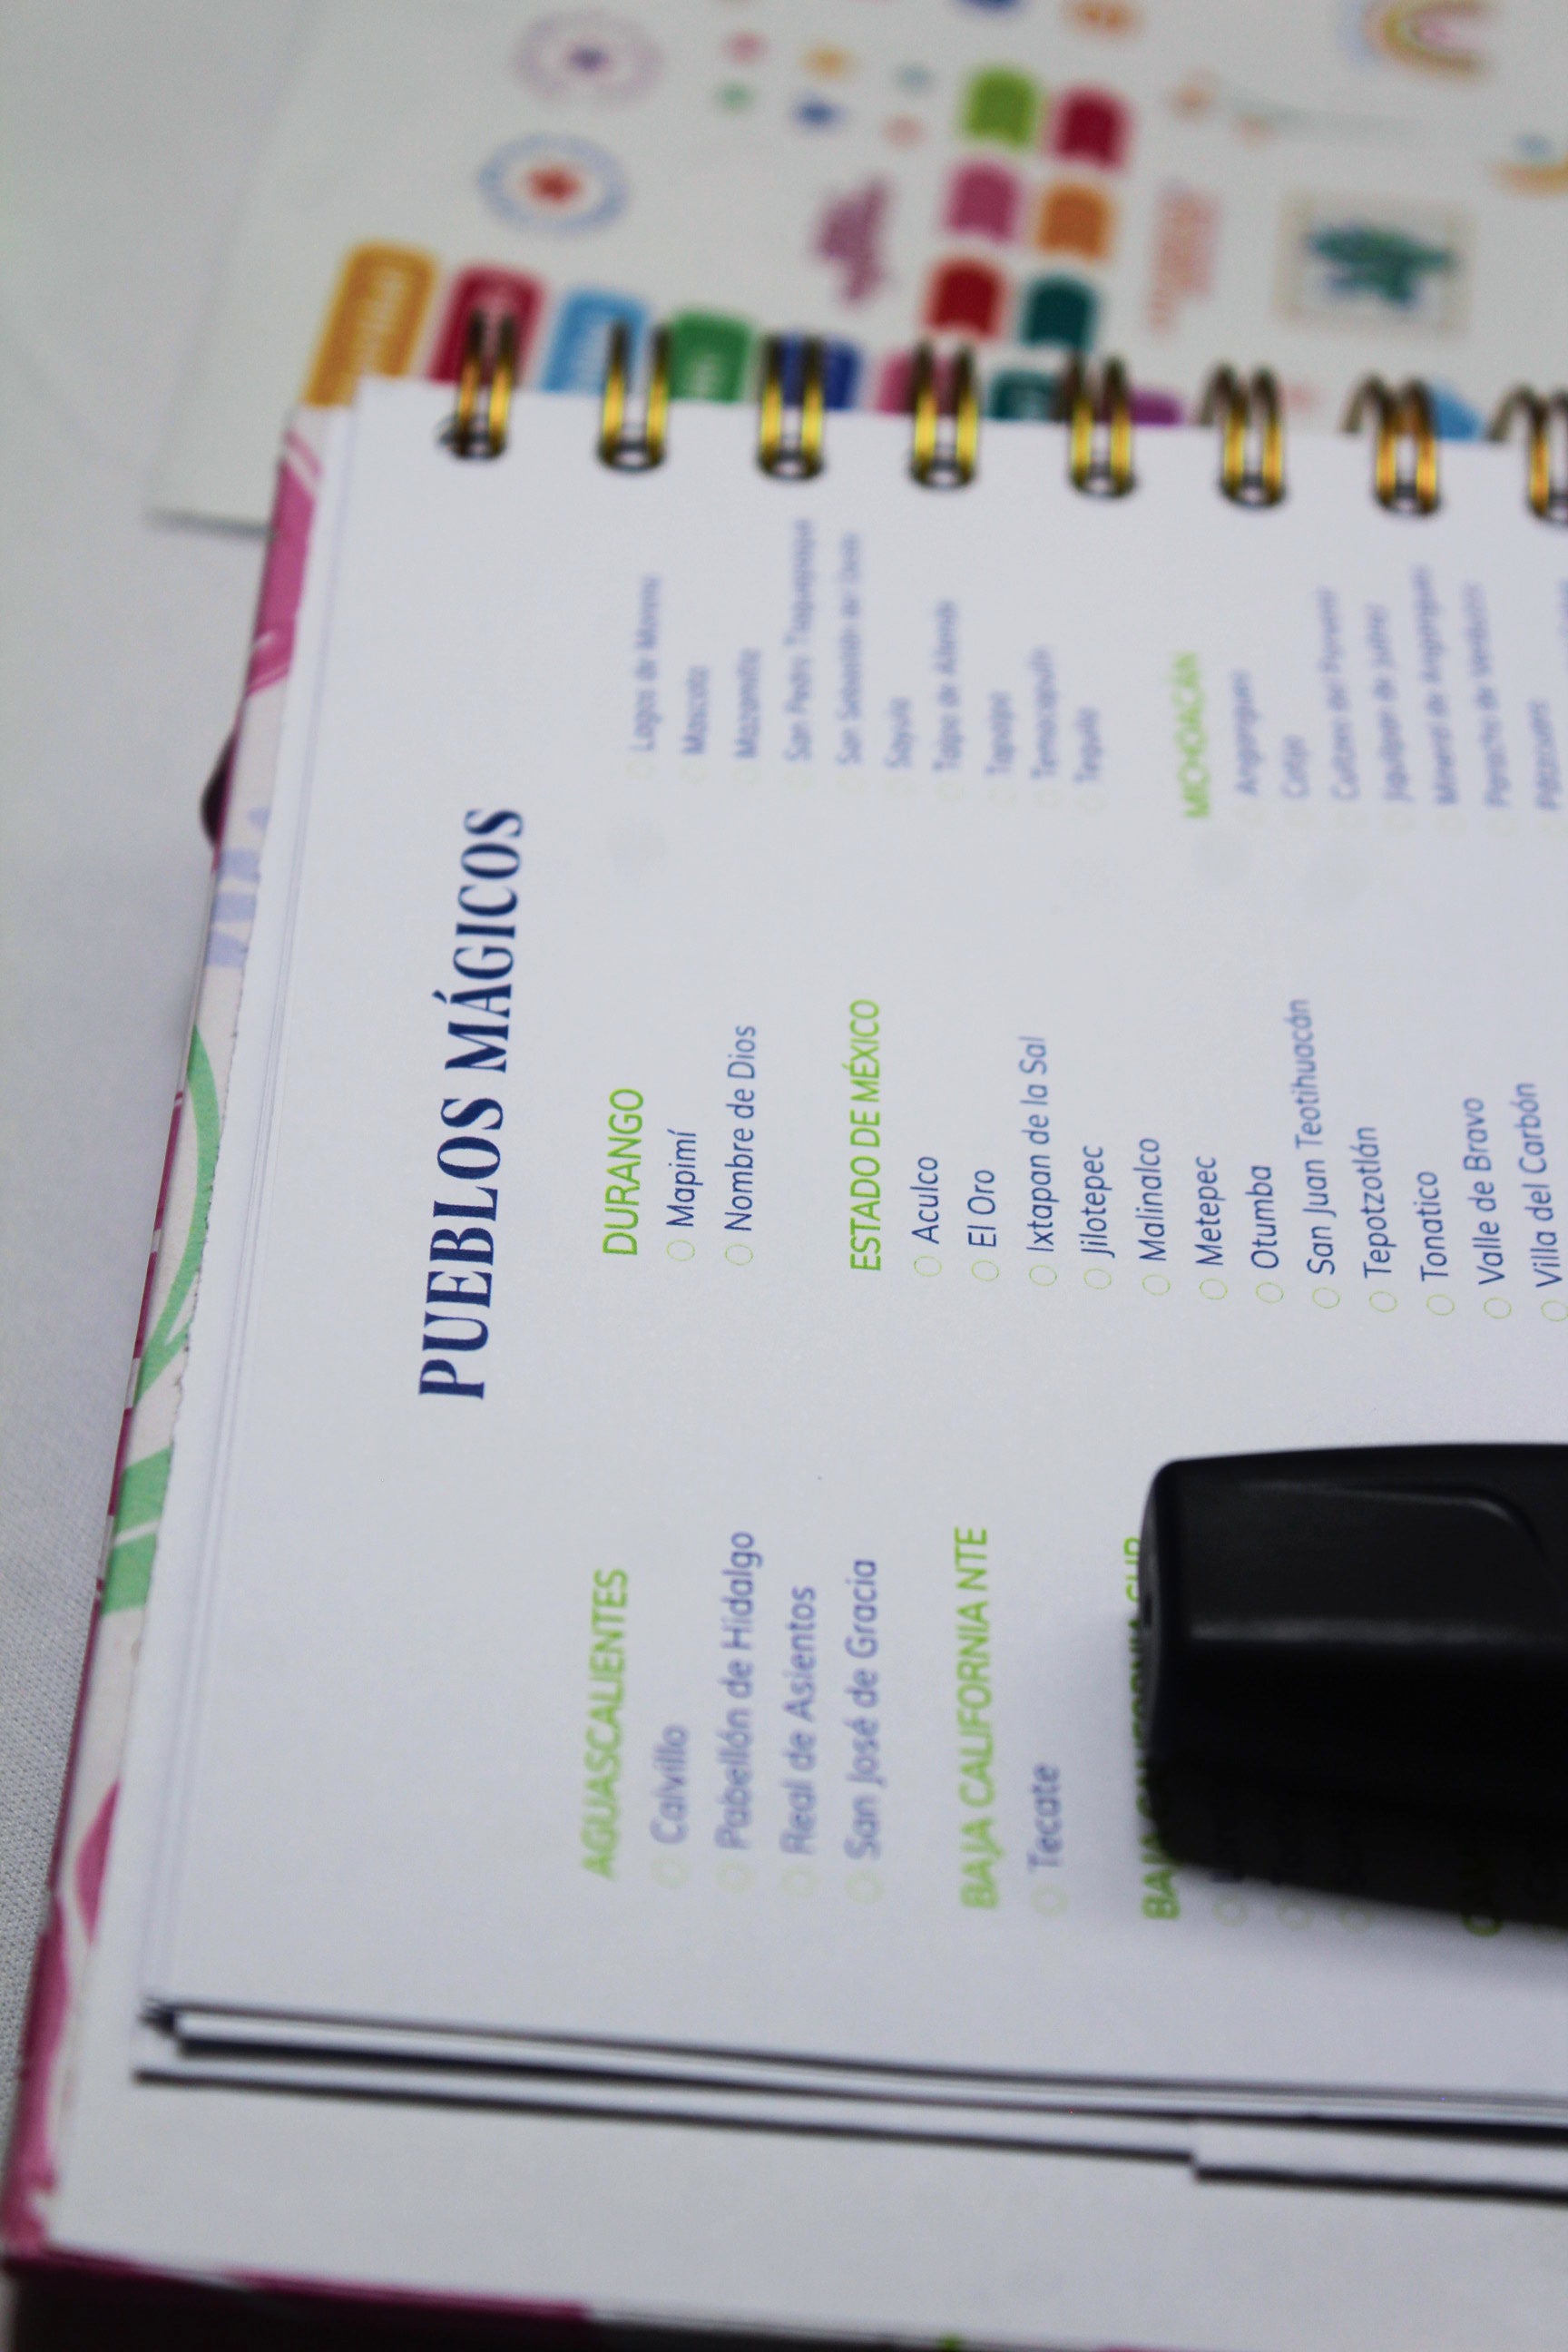 PUEBLOS MÁGICOS
AGUASCALIENTES
Calvillo
Pabellón de Hidalgo
Real de Asientos
San José de Gracia
BAJA CALIFORNIA NTE
Tecate
BAJA CALIFORNIA SUR
DURANGO
Mapimí
Nombre de Dios
ESTADO DE MÉXICO
Aculco
El Oro
Ixtapan de la Sal
Jilotepec
Malinalco
Metepec
Otumba
San Juan Teotihuacán
Tepotzotlán
Tonatico
Valle de Bravo
Villa del Carbón
Lagos de Moreno
Mascota
Mazamitla
San Pedro Tlaquepaque
San Sebastián del Oeste
Sayula
Talpa de Allende
Tapalpa
Temacapulín
Tequila
MICHOACÁN
Angangueo
Cotija
Cuitzeo del Porvenir
Jiquilpan de Juárez
Mineral de Angangueo
Paracho de Verduzco
Pátzcuaro